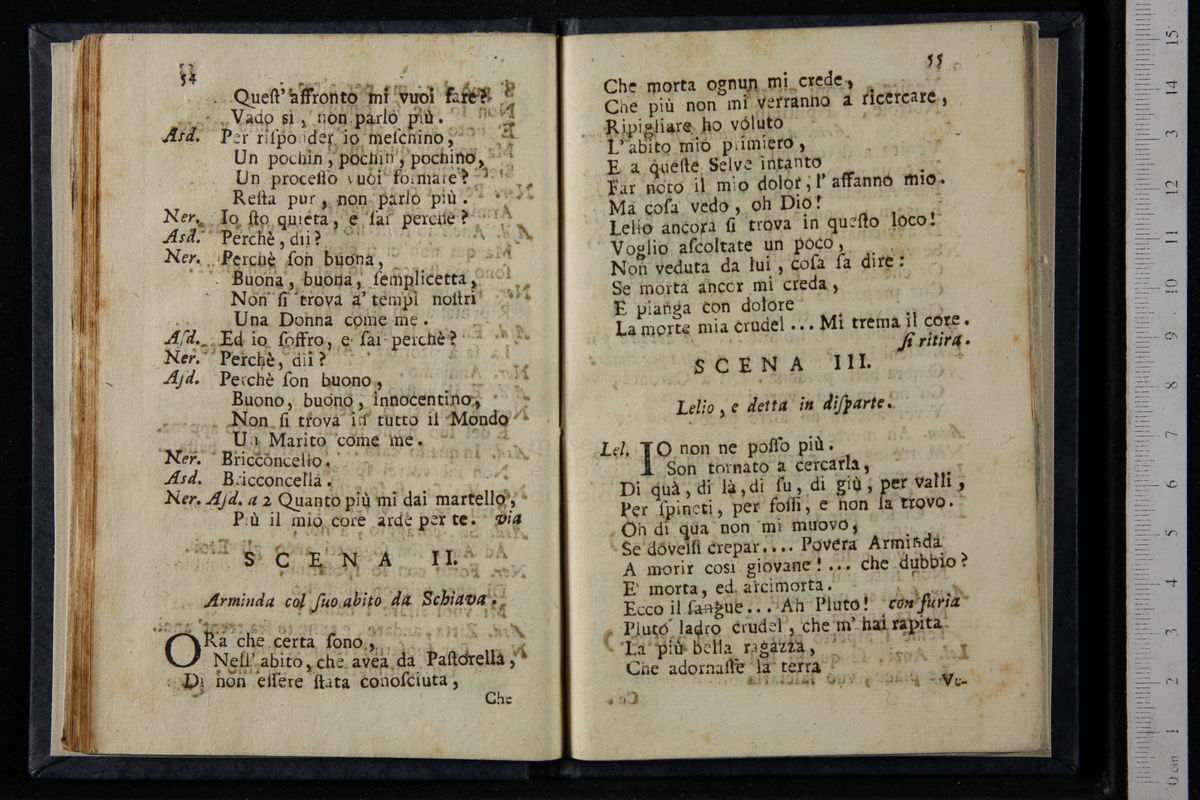 54
Queſt' affronto mi vuoi fare?
Vado sì, non parlo più.
Asd. Per riſponder io meſchino,
Un pochin, pochin, pochino,
Un proceſſo vuoi formare?
Reſta pur, non parlo più.
Ner. Io ſto quieta, e ſai perchè?
Asd. Perchè, dii?
Ner. Perchè ſon buona,
Buona, buona, ſemplicetta,
Non ſi trova a' tempi noſtri
Una Donna come me.
Aſd. Ed io ſoffro, e ſai perchè?
Ner. Perchè, dii?
Aſd. Perchè ſon buono,
Buono, buono, innocentino,
Non ſi trova in tutto il Mondo
Un Marito come me.
Ner. Bricconcello.
Asd. Bricconcella.
Ner. Aſd. a 2 Quanto più mi dai martello,
Più il mio core arde per te. via
SCENA II.
Arminda col ſuo abito da Schiava.
ORa che certa ſono,
Nell' abito, che avea da Paſtorella,
Di non eſſere ſtata conoſciuta,
Che
55
Che morta ognun mi crede,
Che più non mi verranno a ricercare,
Ripigliare ho voluto
L' abito mio primiero,
E a queſte Selve intanto
Far noto il mio dolor, l' affanno mio.
Ma coſa vedo, oh Dio!
Lelio ancora ſi trova in queſto loco!
Voglio aſcoltate un poco,
Non veduta da lui, coſa ſa dire:
Se morta ancor mi creda,
E pianga con dolore
La morte mia crudel... Mi trema il core.
ſi ritira.
SCENA III.
Lelio, e detta in diſparte.
Lel. IO non ne poſſo più.
Son tornato a cercarla,
Di quà, di là, di ſu, di giù, per valli,
Per ſpineti, per foſſi, e non la trovo.
Oh di qua non mi muovo,
Se doveſſi crepar.... Povera Arminda
A morir così giovane!... che dubbio?
E' morta, ed arcimorta.
Ecco il ſangue... Ah Pluto! con furia
Pluto ladro crudel, che m' hai rapita
La più bella ragazza,
Che adornaſſe la terra
Ve-